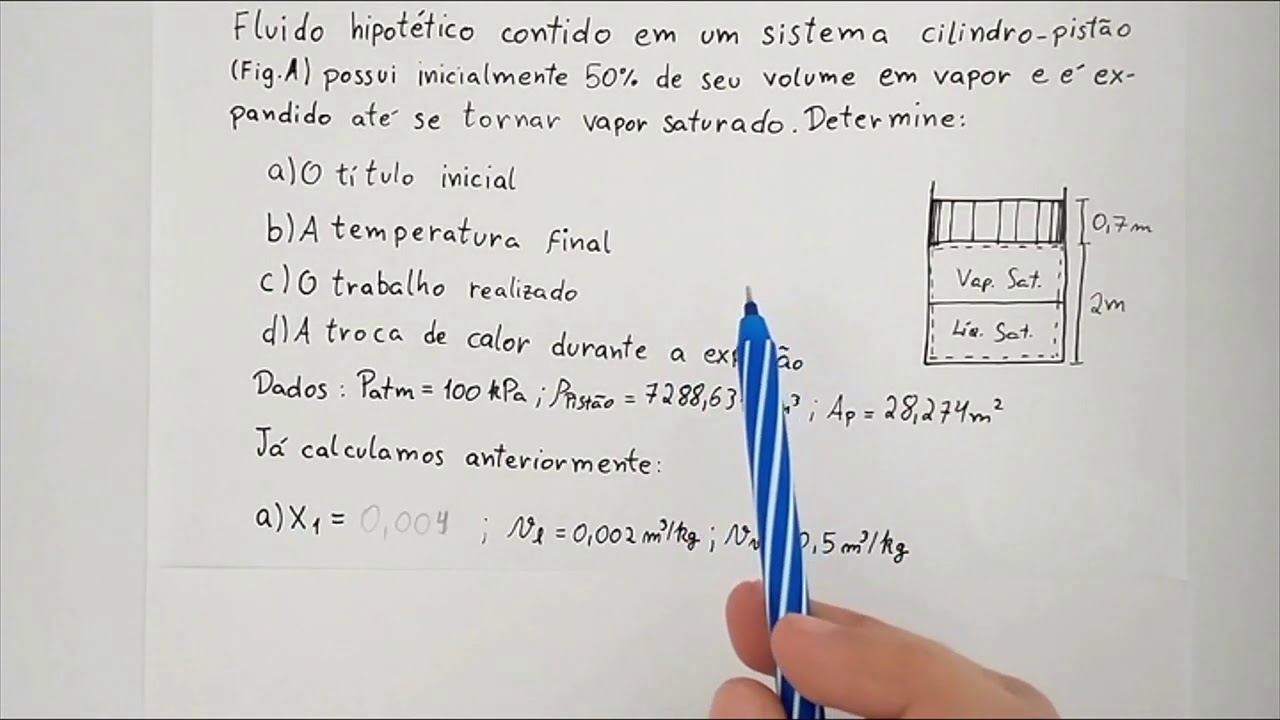 Fluido hipotético contido em um sistema cilindro-pistão
(Fig.A) possui inicialmente 50% de seu volume em vapor e é ex-
pandido até se tornar vapor saturado. Determine:
a) O título inicial
b) A temperatura final
c) O trabalho realizado
d) A troca de calor durante a
0,7m
Vap. Sat.
2m
Líq. Sat.
Dados: Patm = 100 kPa ; ρPistão = ; Ap = 28,274m²
Já calculamos anteriormente:
a) X1 = 0,004 ; vl = 0,002 m³/kg ; m³/kg